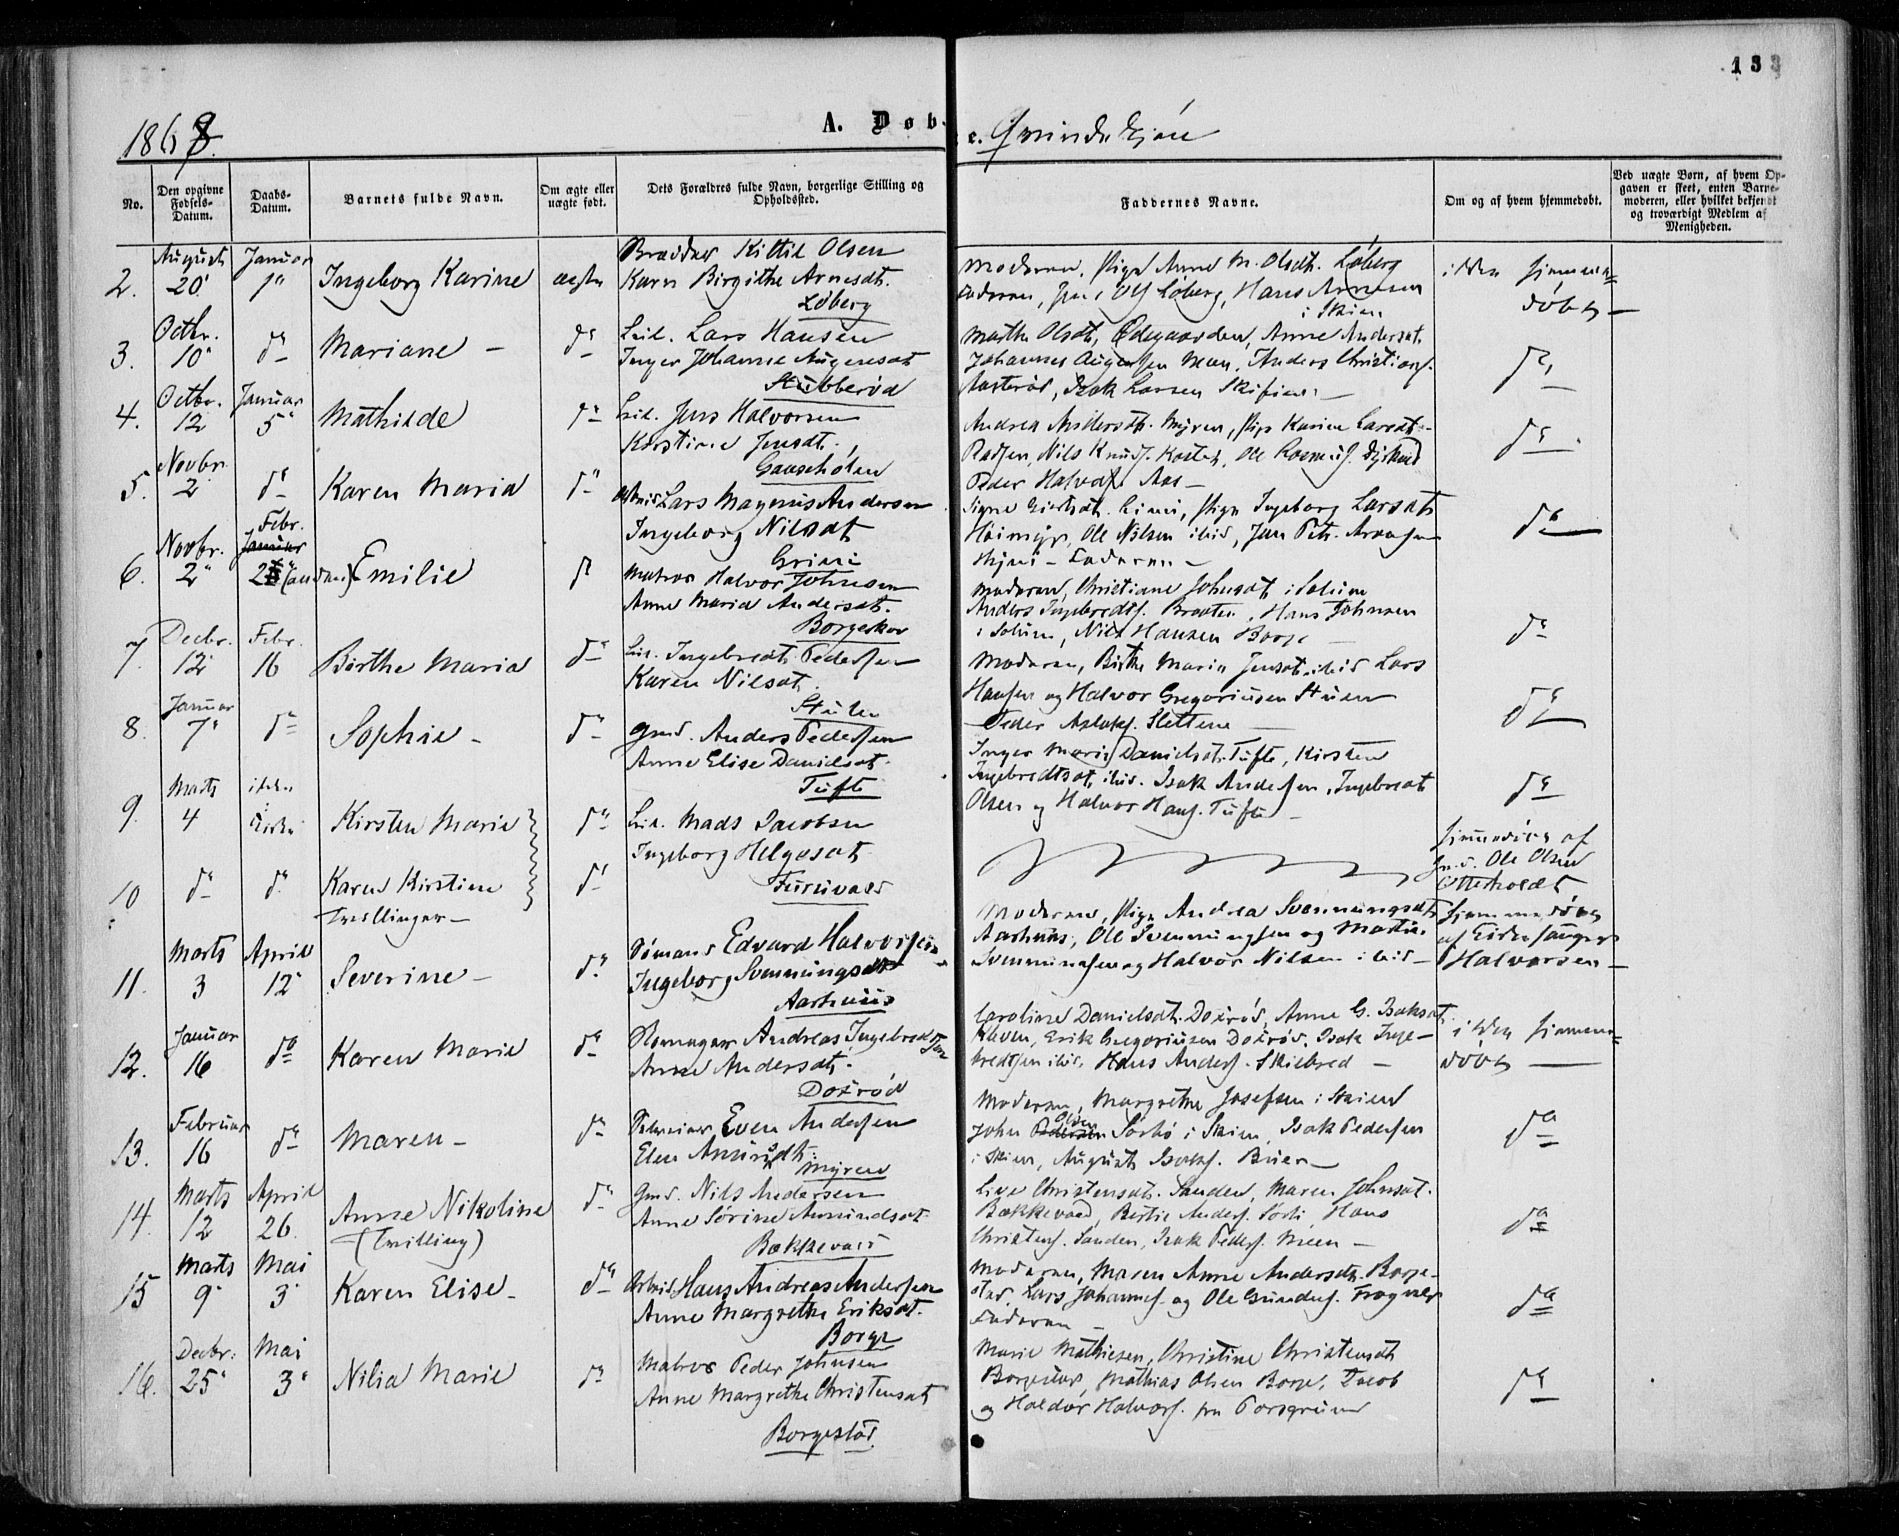 133
1868.
A. Døbte. Qvindekjøn
No.
Den opgivne Fødsels-Datum.
Daabs-Datum.
Barnets fulde Navn.
Om ægte eller uægte født.
Dets Forældres fulde Navn, borgerlige Stilling og Opholdssted.
Faddernes Navne.
Om og af hvem hjemmedøbt.
Ved uægte Børn, af hvem Opgaven er skeet, enten Barnemoderen, eller hvilket bekjendt og troværdigt Medlem af Menigheden.
2. August 20. Januar 1 Ingeborg Karine ægte
Kittil Olsen
Karen Birgithe Arnesdt.
Løberg
Moderen, Pige Anne M. Olsdt. Løberg
Faderen, Løberg, Hans Arnesen
i Skien
ikke hjemme=
døbt —
3. Octbr. 10 do Mariane — do
Leil. Lars Hansen
Inger Johanne
Stubberød
Marthe Olsdt. Ødegaarden, Anne Andersdt.
Johannes Augensen Moen, Anders Christians.
Isak Larsen
do
4. Octbr. 12 Januar 5 Mathilde do
Leil. Jens Halvorsen
Kirstine Jensdt.
Andrea Andersdt. Myren, Pige Karine Larsdt.
Nils Knuds. Ole Rasmus.
Peder Halvors. Aas —
do
5. Novbr. 2 do Karen Maria do
Arbeid. Lars Magnus Andersen
Ingeborg Nilsdt
Grini
Signe Pige Ingeborg Larsdt
Ole Nilsen ibid,
Faderen —
do
6. Novbr. 2 Febr. Januar 2 Emilie do
Matros Halvor Johnsen
Anne Maria Andersdt.
Borgeskov
Moderen, Christiane Johnsdt. i Solum
Anders Ingebredts. Braaten, Hans Johnsen
i Solum, Nils Hansen Borge —
do
7. Decbr. 12 Febr. 16 Birthe Maria do
Leil. Ingebredt Pedersen
Karen Nilsdt.
Stulen
Moderen, Birthe Maria Jensdt. ibid Lars
Hansen og Halvor Gregoriusen Stuen
Peder Aslaks. Slettene —
do
8. Januar 7 do Sophie — do
Gmd. Anders Pedersen
Anne Elise Danielsdt.
Tufte
Inger Marie Danielsdt. Tufte, Kirsten
Ingebredtsdt. ibid. Isak Andersen, Ingebredt
Olsen og Halvor Hans. Tufte —
do
9. Marts 4 i Kirken Kirsten Marie do
Leil. Mads Jacobsen
Ingeborg Helgesdt
Furuvald
10 do do Karen Kirstine do
Tvillinger —
hjemmedøbt af
Ole Olsen
Otterholdt
11. Marts 3 April 12 Severine — do
Sømand Edvard Halvorsen
Ingeborg Svenningsdt
Aarhuus
Moderen, Pige Andrea Svenningsdt
Aarhuus, Ole Svenningsen og Martin
Svenningsen og Halvor Nilsen ibid —
hjemmedøbt
af Kirkesanger
Halvorsen —
12. Januar 16 do Karen Marie do
Andreas Ingebredtsen
Anne Andersdt.
Doxrød
Caroline Danielsdt. Doxrød, Anne G. Isaksdt.
Kleven, Erik Gregoriusen Doxrød, Isak Inge-
bredtsen ibid. Hans Anders. Skilbred —
ikke hjemme=
døbt —
13. Februar 16 do Maren — do
Even Andersen
Elen Amundsdt.
Myren
Moderen, Margrethe Josefsen i Skien
John Pedersen Olsen i Skien, Isak Pedersen
i Skien, August Isaks. Buer —
do
14. Marts 12 April 26. Anne Nikoline do
(Tvilling)
Gmd. Nils Andersen
Anne Sørine Amundsdt
Bækkevold
Live Christensdt. Sanden, Maren Johnsdt.
Bækkevold, Anders. Hans
Christens. Sanden, Isak Peders. Meen —
do
15 Marts 9 Mai 3 Karen Elise — do
Arbeid. Hans Andreas Andersen
Anne Margrethe Eriksdt.
Borge
Moderen, Maren Anne Andersdt. Borge-
stad, Lars Johannes. og Ole Gunders.
Faderen —
do
16. Decbr. 25 Mai 3 Nilia Marie do
Matros Peder Johnsen
Anne Margrethe Christensdt
Borgestad.
Marie Mathiesen, Christine Christensdt
Borgestad, Mathias Olsen Borge, Jacob
og Haldor Halvors. fra Porsgrund
do